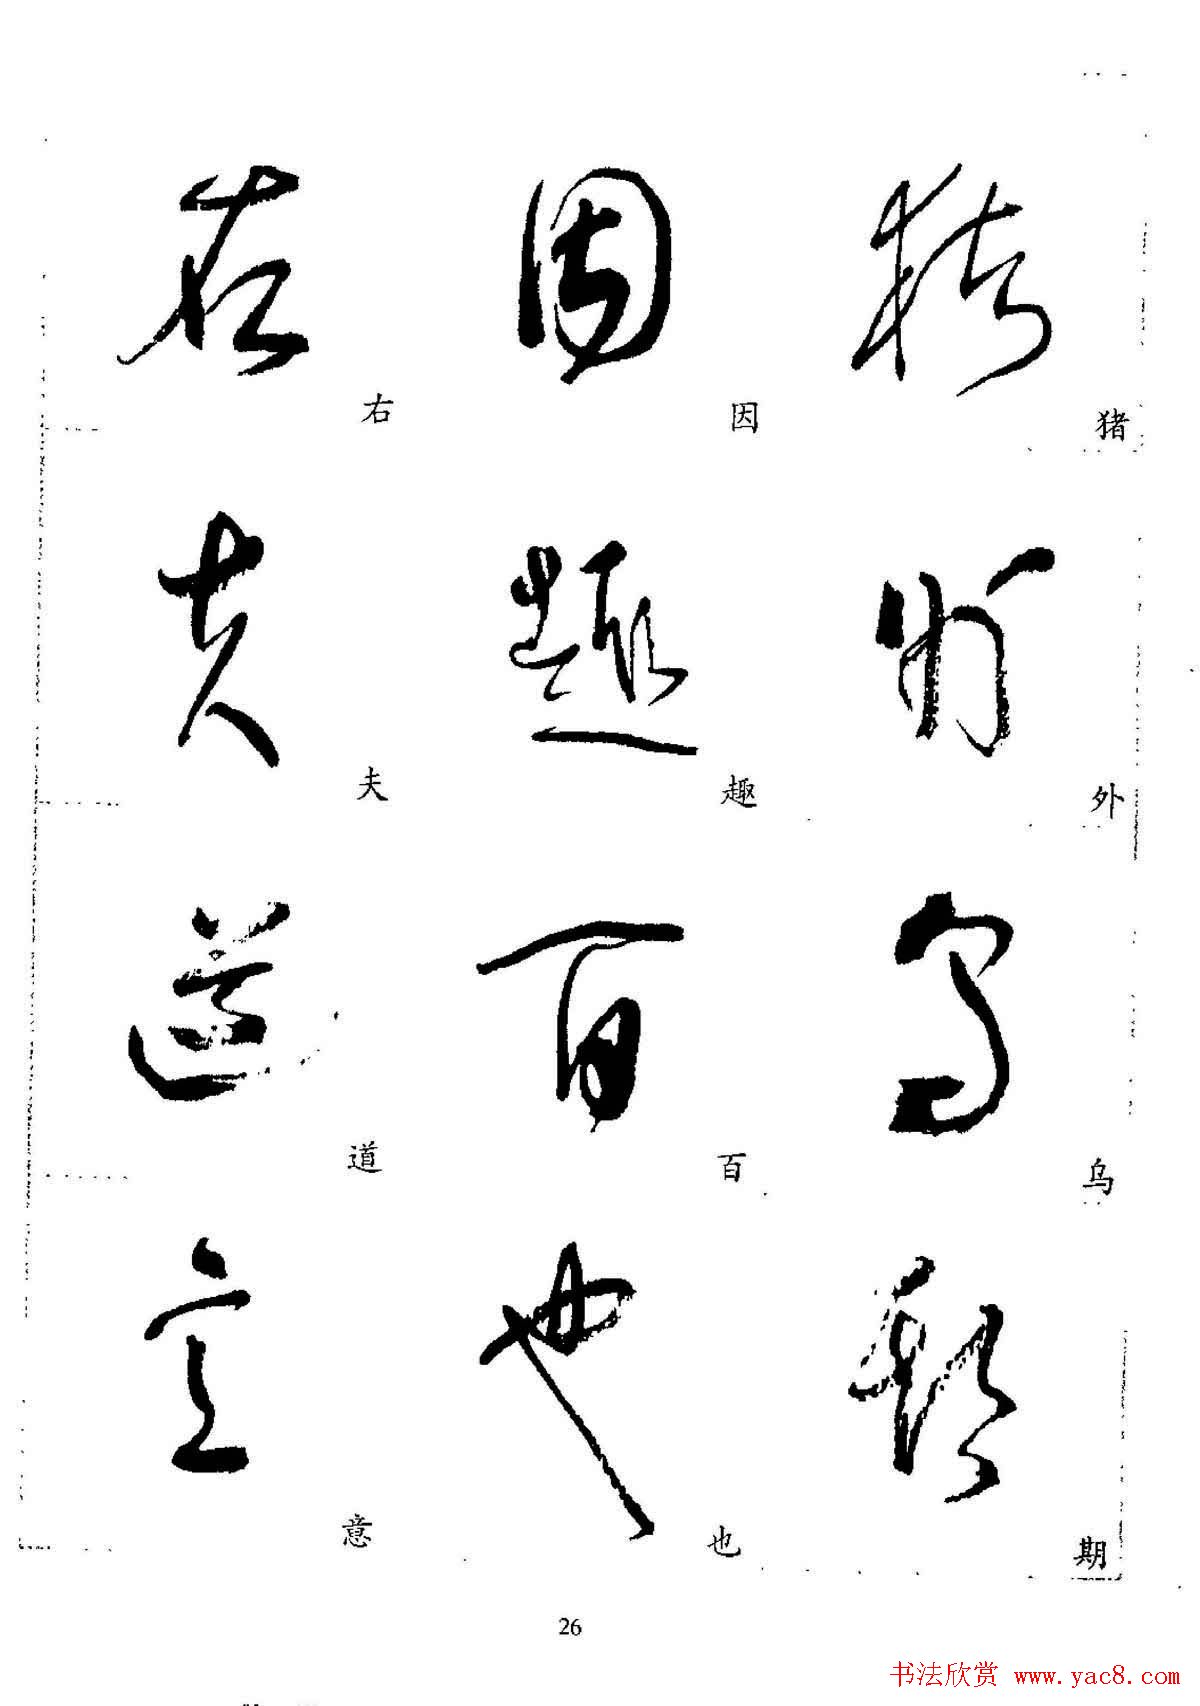 右 因 猪
夫 趣 外
道 百 乌
意 也 期
26
书法欣赏 www.yac8.com